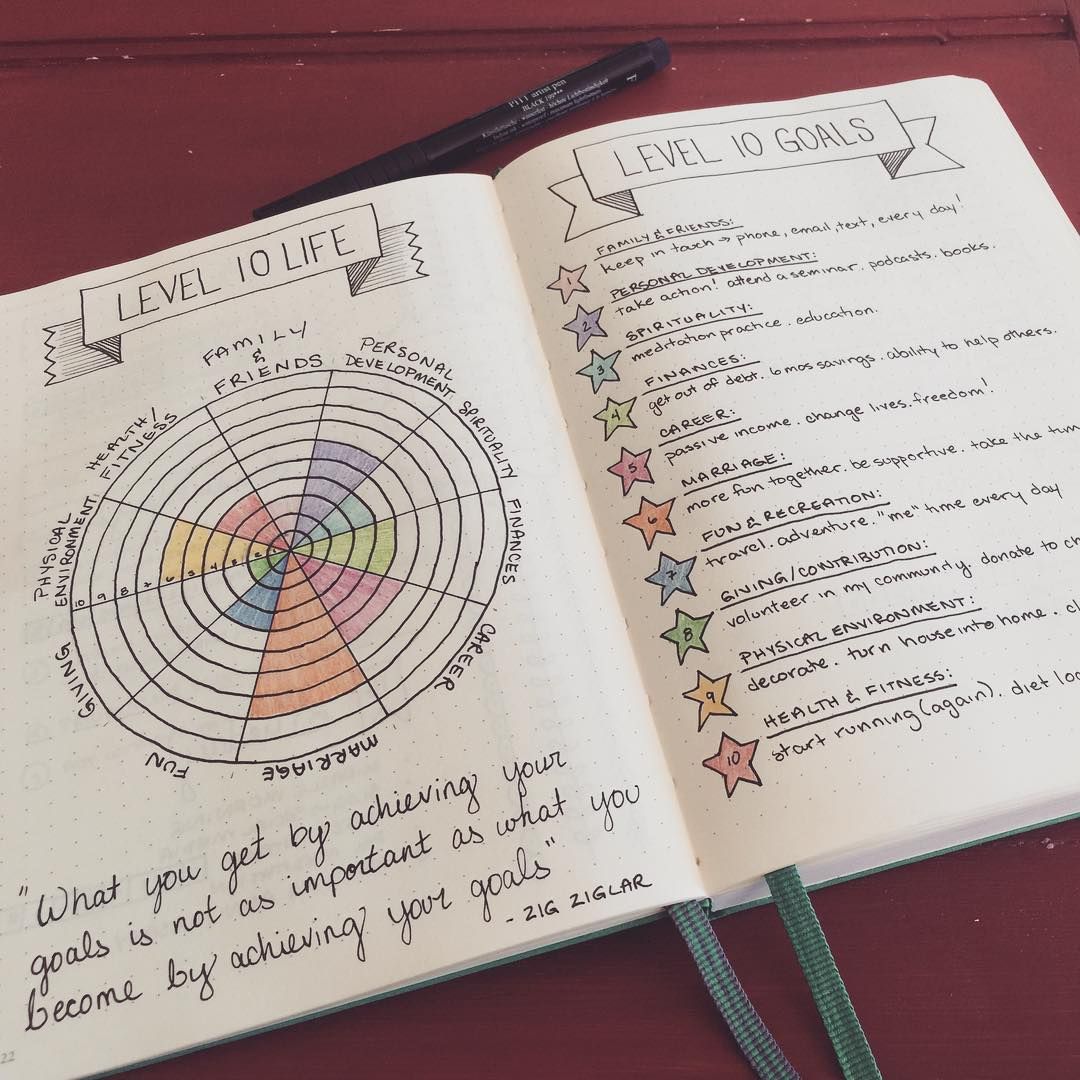 PITT artist pen
BLACK 199***
F
LEVEL 10 LIFE
FAMILY
&
FRIENDS
PERSONAL
DEVELOPMENT
SPIRITUALITY
FINANCES
CAREER
MARRIAGE
FUN
GIVING
PHYSICAL
ENVIRONMENT
HEALTH/
FITNESS
10 9 8 7 6 5 4 3 2 1
"What you get by achieving your
goals is not as important as what you
become by achieving your goals"
- ZIG ZIGLAR
22
LEVEL 10 GOALS
1 FAMILY & FRIENDS:
keep in touch → phone, email, text, every day!
2 PERSONAL DEVELOPMENT:
take action! attend a seminar. podcasts. books.
3 SPIRITUALITY:
meditation practice. education.
4 FINANCES:
get out of debt. 6 mos savings. ability to help others.
5 CAREER:
passive income. change lives. freedom!
6 MARRIAGE:
more fun together. be supportive. take the
7 FUN & RECREATION:
travel. adventure. "me" time every day
8 GIVING/CONTRIBUTION:
volunteer in my community. donate to
9 PHYSICAL ENVIRONMENT:
decorate. turn house into home.
10 HEALTH & FITNESS:
start running (again). diet